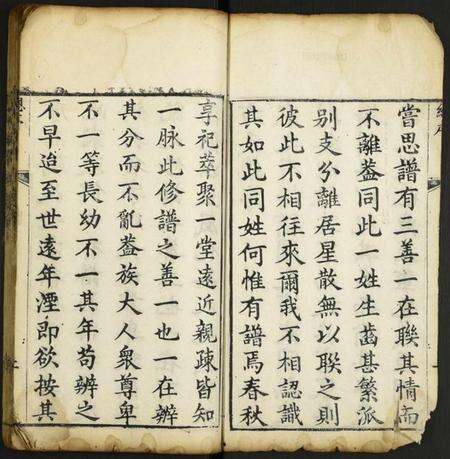 嘗思譜有三善一在聯其情而
不離葢同此一姓生齒甚繁派
别支分離居星散無以聯之則
彼此不相往來爾我不相認識
其如此同姓何惟有譜焉春秋
享祀萃聚一堂遠近親疎皆知
一脉此修譜之善一也一在辨
其分而不亂葢族大人衆尊卑
不一等長幼不一其年苟辨之
不早迨至世遠年湮即欲按其